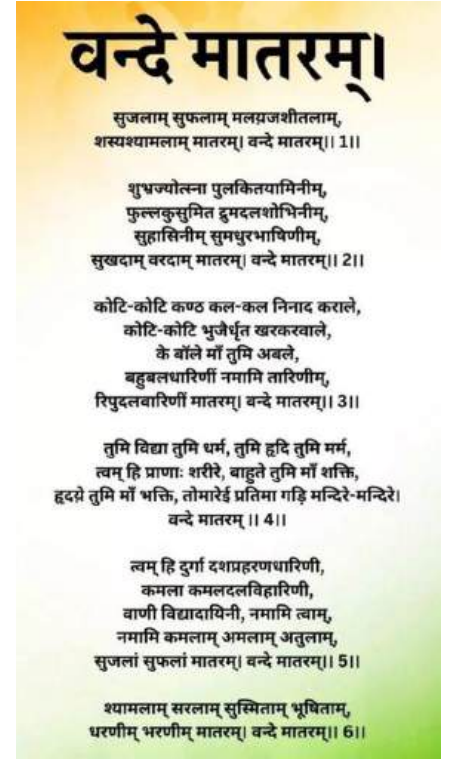 वन्दे मातरम्।
सुजलाम् सुफलाम् मलयजशीतलाम्,
शस्यश्यामलाम् मातरम्। वन्दे मातरम्।। 1।।
शुभ्रज्योत्स्ना पुलकितयामिनीम्,
फुल्लकुसुमित द्रुमदलशोभिनीम्,
सुहासिनीम् सुमधुरभाषिणीम्,
सुखदाम् वरदाम् मातरम्। वन्दे मातरम्।। 2।।
कोटि-कोटि कण्ठ कल-कल निनाद कराले,
कोटि-कोटि भुजैर्धृत खरकरवाले,
के बॉले माँ तुमि अबले,
बहुबलधारिणीं नमामि तारिणीम्,
रिपुदलवारिणीं मातरम्। वन्दे मातरम्।। 3।।
तुमि विद्या तुमि धर्म, तुमि हृदि तुमि मर्म,
त्वम् हि प्राणाः शरीरे, बाहुते तुमि माँ शक्ति,
हृदय़े तुमि माँ भक्ति, तोमारेई प्रतिमा गड़ि मन्दिरे-मन्दिरे।
वन्दे मातरम् ।। 4।।
त्वम् हि दुर्गा दशप्रहरणधारिणी,
कमला कमलदलविहारिणी,
वाणी विद्यादायिनी, नमामि त्वाम्,
नमामि कमलाम् अमलाम् अतुलाम्,
सुजलां सुफलां मातरम्। वन्दे मातरम्।। 5।।
श्यामलाम् सरलाम् सुस्मिताम् भूषिताम्,
धरणीम् भरणीम् मातरम्। वन्दे मातरम्।। 6।।